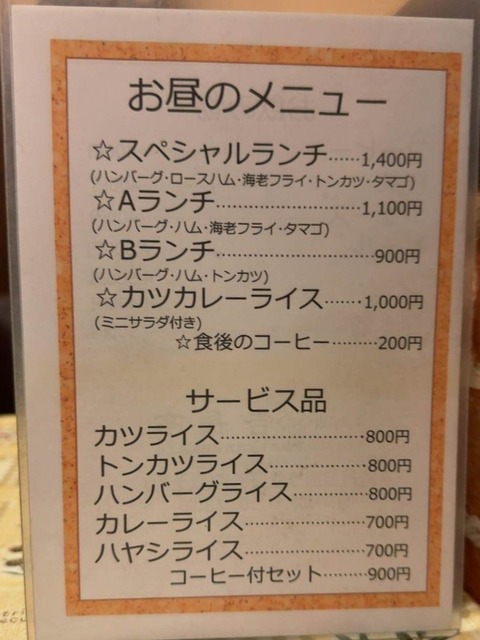 お昼のメニュー
☆スペシャルランチ……1,400円
(ハンバーグ・ロースハム・海老フライ・トンカツ・タマゴ)
☆Aランチ………………1,100円
(ハンバーグ・ハム・海老フライ・タマゴ)
☆Bランチ…………………900円
(ハンバーグ・ハム・トンカツ)
☆カツカレーライス…….1,000円
(ミニサラダ付き)
☆食後のコーヒー………200円
サービス品
カツライス……………………800円
トンカツライス………………800円
ハンバーグライス……………800円
カレーライス…………………700円
ハヤシライス…………………700円
コーヒー付セット………900円